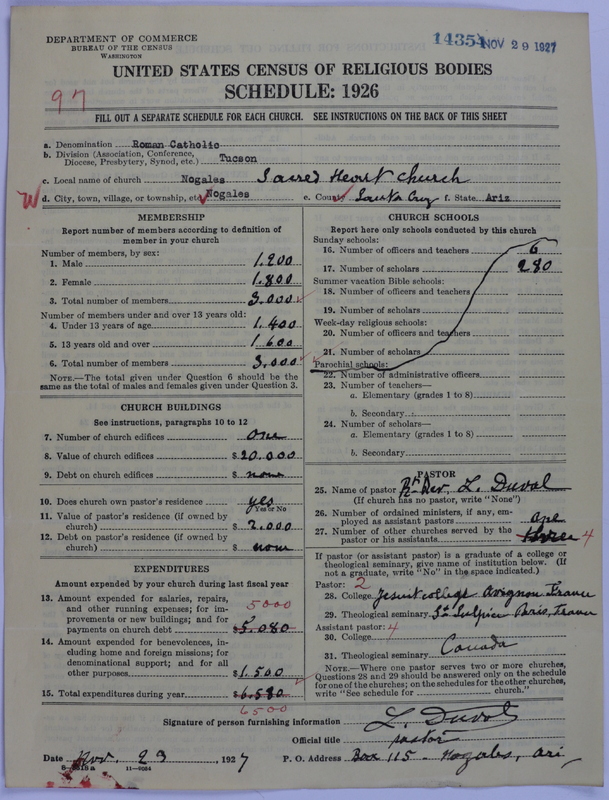 DEPARTMENT OF COMMERCE
BUREAU OF THE CENSUS
WASHINGTON
14354 NOV 29 1927
UNITED STATES CENSUS OF RELIGIOUS BODIES
SCHEDULE: 1926
97
FILL OUT A SEPARATE SCHEDULE FOR EACH CHURCH. SEE INSTRUCTIONS ON THE BACK OF THIS SHEET
a. Denomination Roman Catholic
b. Division (Association, Conference,
Diocese, Presbytery, Synod, etc.) Tucson
c. Local name of church Nogales Sacred Heart Church
W d. City, town, village, or township, etc. Nogales e. County Santa Cruz f. State Ariz
MEMBERSHIP
Report number of members according to definition of
member in your church
Number of members, by sex:
1. Male 1.200
2. Female 1.800
3. Total number of members 3.000
Number of members under and over 13 years old:
4. Under 13 years of age 1.400
5. 13 years old and over 1600
6. Total number of members 3.000
NOTE.—The total given under Question 6 should be the
same as the total of males and females given under Question 3.
CHURCH BUILDINGS
See instructions, paragraphs 10 to 12
7. Number of church edifices one
8. Value of church edifices $20.000
9. Debt on church edifices $ none
10. Does church own pastor's residence yes
Yes or No
11. Value of pastor's residence (if owned by
church) $ 2.000
12. Debt on pastor's residence (if owned by
church) $ none
EXPENDITURES
Amount expended by your church during last fiscal year
13. Amount expended for salaries, repairs,
and other running expenses; for im- 5000
provements or new buildings; and for
payments on church debt $5.080
14. Amount expended for benevolences, in-
cluding home and foreign missions; for
denominational support; and for all
other purposes $1.500
15. Total expenditures during year $6.580
6500
CHURCH SCHOOLS
Report here only schools conducted by this church
Sunday schools:
16. Number of officers and teachers 6
17. Number of scholars 280
Summer vacation Bible schools:
18. Number of officers and teachers
19. Number of scholars
Week-day religious schools:
20. Number of officers and teachers
21. Number of scholars
Parochial schools:
22. Number of administrative officers
23. Number of teachers—
a. Elementary (grades 1 to 8)
b. Secondary
24. Number of scholars—
a. Elementary (grades 1 to 8)
b. Secondary
PASTOR
25. Name of pastor Rt Rev. L. Duval
(If church has no pastor, write "None")
26. Number of ordained ministers, if any, em-
ployed as assistant pastors one
27. Number of other churches served by the
pastor or his assistants three 4
If pastor (or assistant pastor) is a graduate of a college or
theological seminary, give name of institution below. (If
not a graduate, write "No" in the space indicated.)
Pastor: 2
28. College Jesuit college Avignon France
29. Theological seminary St Sulpice Paris, France
Assistant pastor: 4
30. College
Canada
31. Theological seminary
NOTE.—Where one pastor serves two or more churches,
Questions 28 and 29 should be answered only on the schedule
for one of the churches; on the schedules for the other churches,
write "See schedule for church."
Signature of person furnishing information L. Duval
Official title pastor
Date Nov. 23, 1927 P. O. Address Box 115 - Nogales, Ari,
11—9094